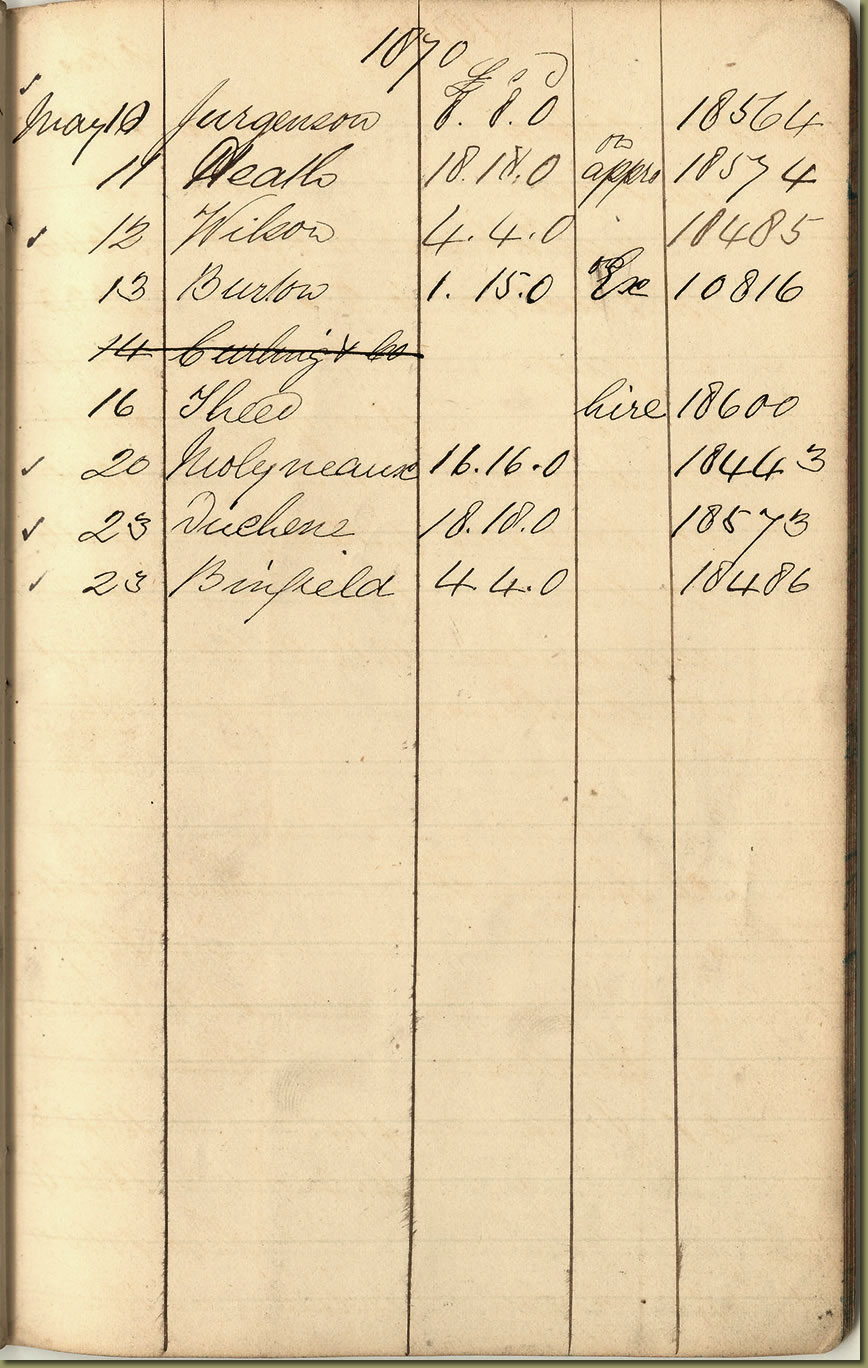 1870
£ s d
✓ May 10 Jurgenson 8. 8. 0 18564
11 Heath 18. 18. 0 on appro 18574
✓ 12 Wilson 4. 4. 0 18485
13 Burton 1. 15. 0 on Ex 10816
14 Curbing & Co
16 Theed hire 18600
✓ 20 Molyneaux 16. 16. 0 18443
✓ 23 Duchene 18. 18. 0 18573
✓ 23 Binfield 4. 4. 0 18486